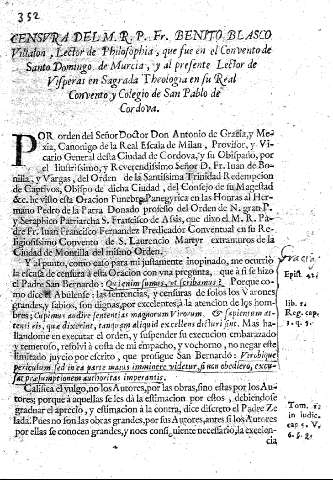 352
CENSVRA DEL M. R. P. Fr. BENITO BLASCO
Villalon, Lector de Philosophia, que fue en el Convento de
Santo Domingo de Murcia, y al presente Lector de
Visperas en Sagrada Theologia en su Real
Convento y Colegio de San Pablo de
Cordova.
POR orden del Señor Doctor Don Antonio de Grazia, y Me-
xia, Canonigo de la Real Escala de Milan, Provisor, y Vi-
cario General desta Ciudad de Cordova, y su Obispado, por
el Ilustrissimo, y Reverendissimo Señor D. Fr. Iuan de Bo-
nilla, y Vargas, del Orden de la Santissima Trinidad Redempcion
de Captivos, Obispo de dicha Ciudad, del Consejo de su Magestad
&c. he visto esta Oracion Funebre Panegyrica en las Honras al Her
mano Pedro de la Parra Donado professo del Orden de N. gran P.
y Seraphico Patriarcha S. Francisco de Assis, que dixo el M. R. Pa-
dre Fr. Iuan Francisco Fernandez Predicador Conventual en su Re-
ligiosissimo Convento de S. Laurencio Martyr extramuros de la
Ciudad de Montilla del mismo Orden.
Y al punto, como caso para mi justamente inopinado, me ocurriò
la escusa de censura à esta Oracion con vna pregunta, que à si se hizo
el Padre San Bernardo: Qui enim sumus, vt scribamus? Porque co-
mo dize el Abulense: las sentencias, y censuras de solos los Varones
grandes, y sabios, son dignos, por excelentes, à la atencion de los hom
bres; Cupimus audire sententias magnorum Virorum, & sapientum at-
tenti eis, quæ dixerint, tamquam aliquid excellens dicturi sint. Mas ha-
llandome en executar el orden, y suspender su execucion embarazado
y temeroso, resolvi à costa de mi empacho, y vochorno, no negar este
limitado juyzio por escrito, que prosigue San Bernardo: Verobique
periculum sed in ea parte maius imminere videtur, si non obediero, excu-
sat præsumptionem authoritas imperantis.
Califica el vulgo, no los Autores, por las obras, sino estas por los Au-
tores; porque à aquellas se les dà la estimacion por estos, debiendose
graduar el aprecio, y estimacion à la contra, dice discreto el Padre Ze
lada. Pues no son las obras grandes, por sus Autores, antes si los Autores
por ellas se conocen grandes, y no es consiguiente necessario, la excelen-
cia
Epist. 42.
lib. 3.
Reg. cap.
3. q. 5.
Tom. 1.
in Iudic.
cap. 5. V.
6. §. 2.